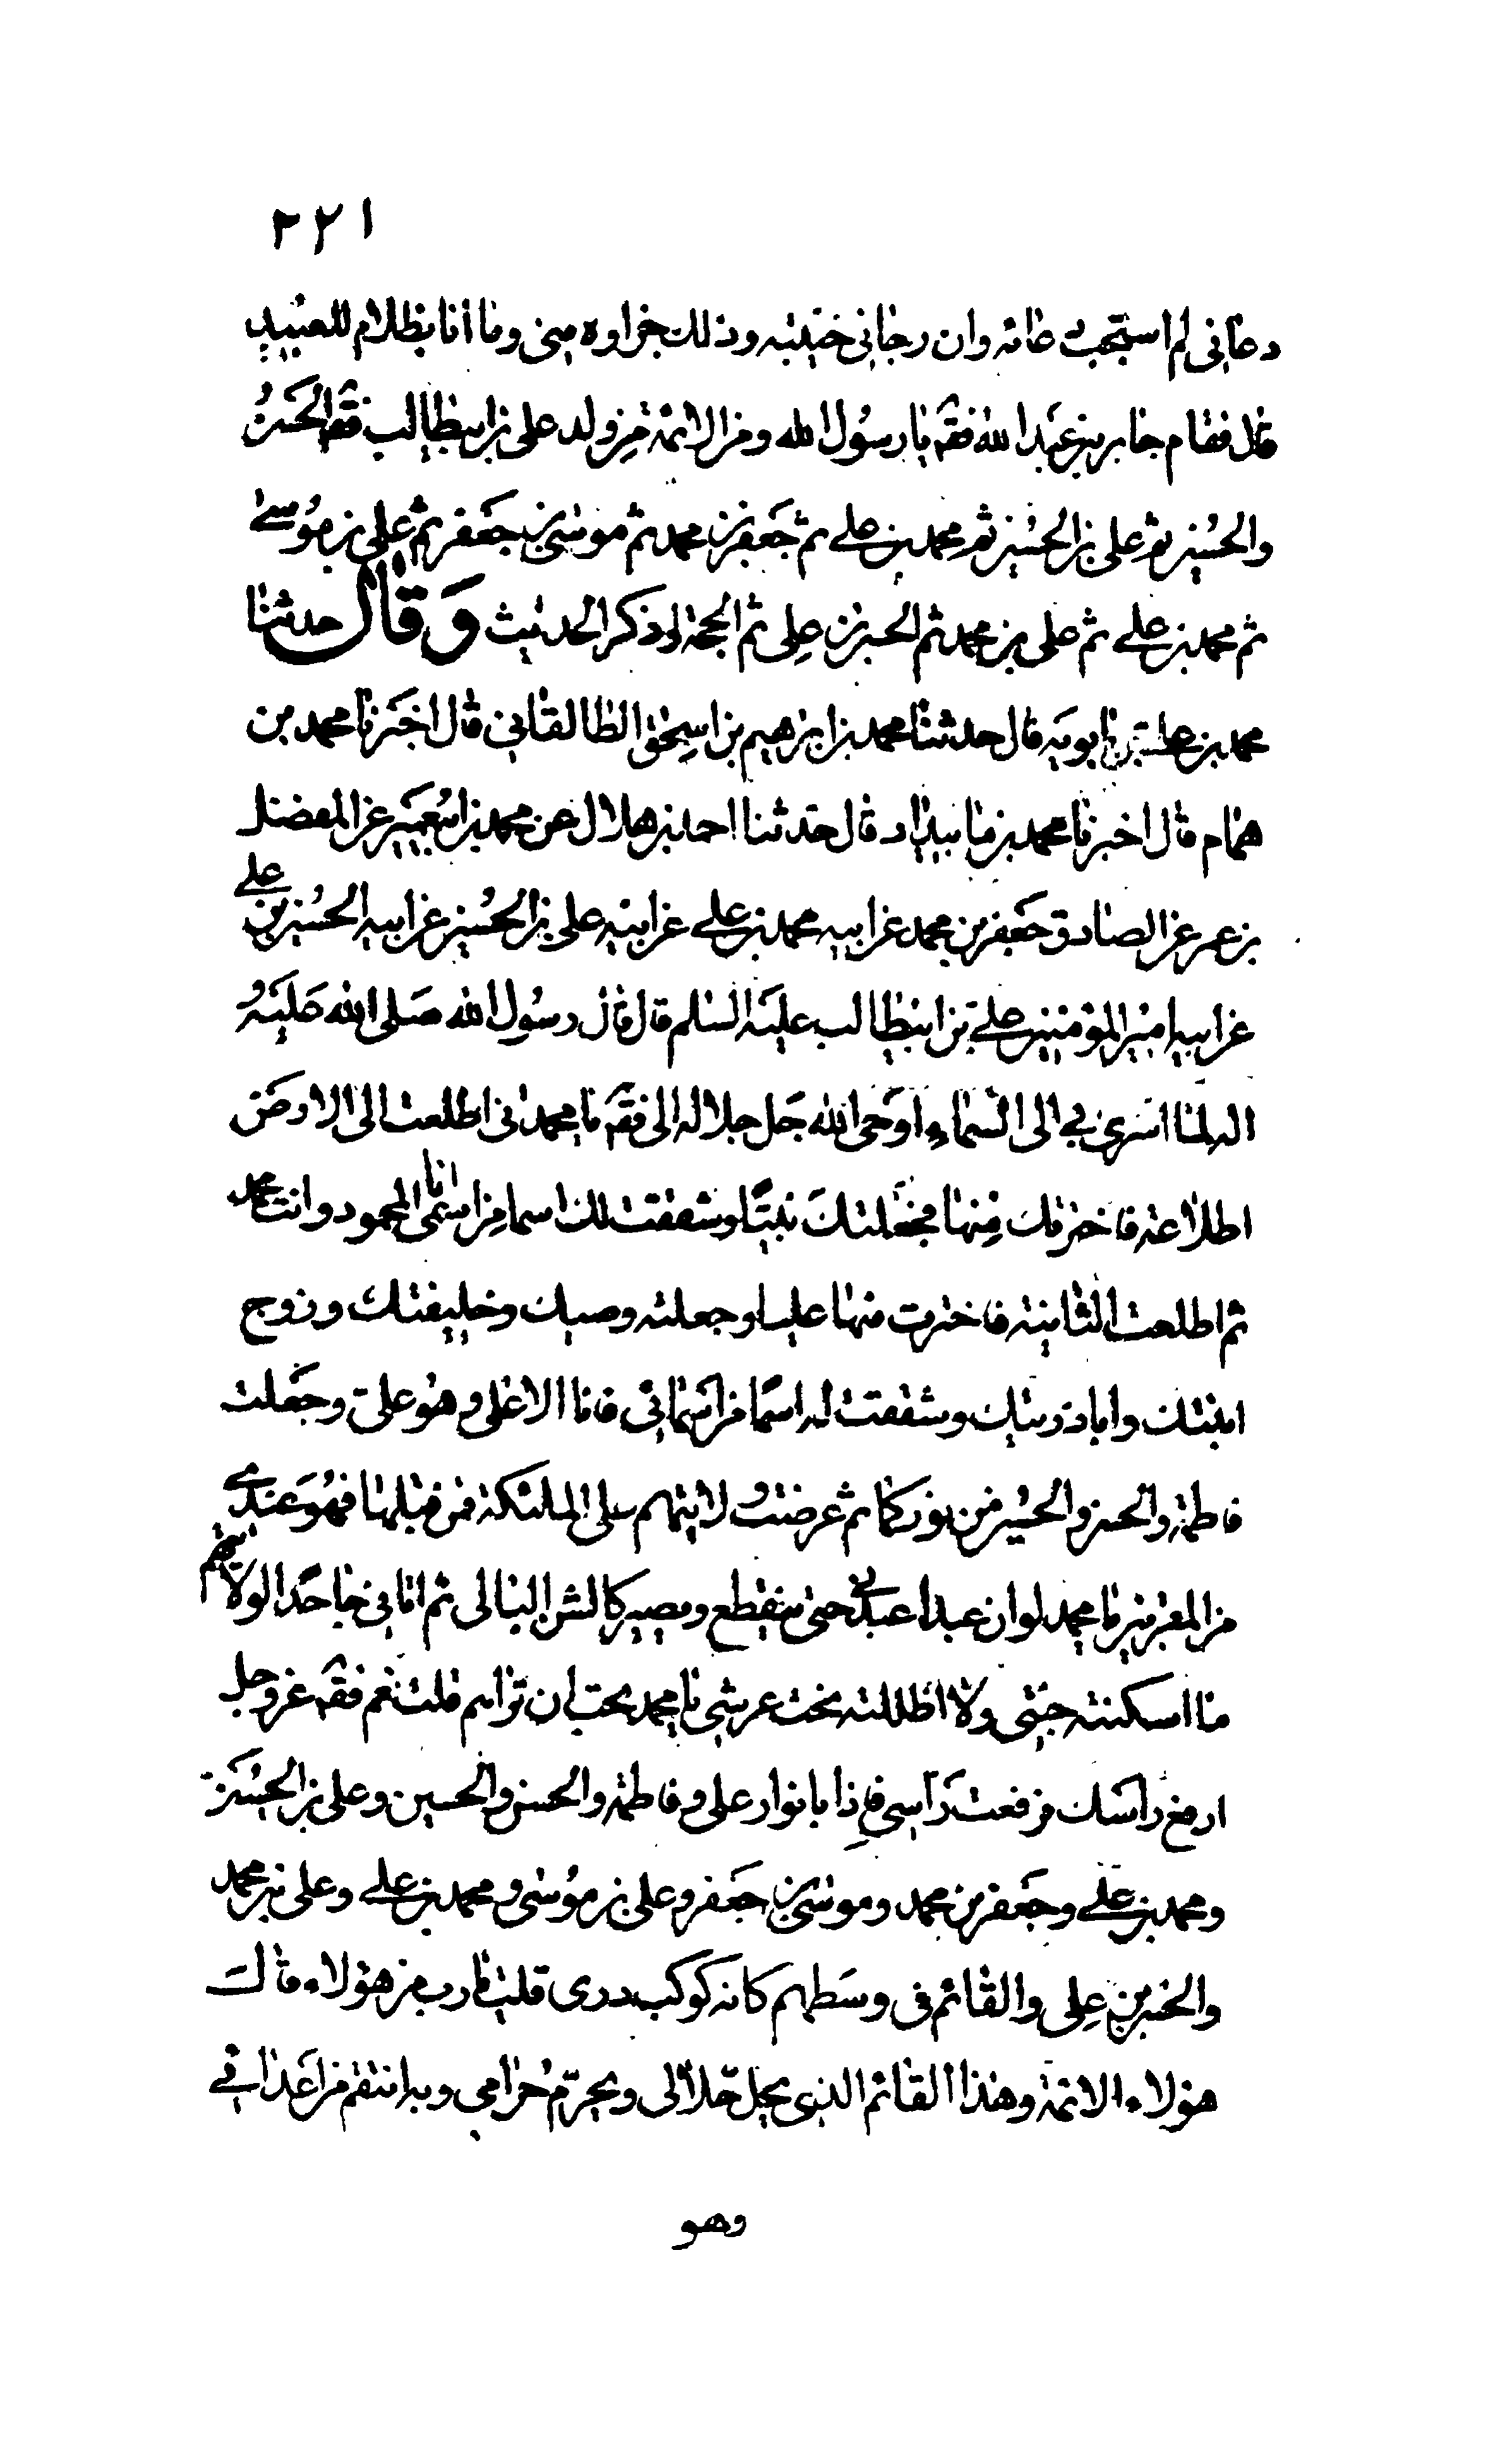 ٢٢١
دعاني لم استجب دعائه وان رجاني خيبته وذلك جزاوه مني وما انا بظلام للعبيد
قال فقام جابر بن عبد الله فقه يا رسول الله ومن الائمة من ولد علي بن ابيطالب فقه الحسن
والحسين ثم علي بن الحسين ثم محمد بن علي ثم جعفر بن محمد ثم موسى بن جعفر ثم علي بن موسى
ثم محمد بن علي ثم علي بن محمد ثم الحسن بن علي ثم الحجة وذكر الحديث وقال حدثنا
محمد بن علي بن بابويه قال حدثنا محمد بن ابرهيم بن اسحق الطالقاني قال اخبرنا محمد بن
همام قال اخبرنا محمد بن مابنداد قال حدثنا احمد بن هلال عن محمد بن ابيعمير عن المفضل
بن عمر عن الصادق جعفر بن محمد عن ابيه محمد بن علي عن ابيه علي بن الحسين عن ابيه الحسين بن علي
عن ابيه امير المؤمنين علي بن ابيطالب عليه السلم قال قال رسول الله صلى الله عليه
اله لما اسري بي الى السماء اوحى الله جل جلاله الي فقه يا محمد اني اطلعت الى الارض
اطلاعة فاخترتك منها فجعلتك نبيا وشققت لك اسما من اسمي انا المحمود وانت محمد
ثم اطلعت الثانية فاخترت منها عليا وجعلته وصيك وخليفتك وزوج
ابنتك وابا ذريتك وشققت له اسما من اسمائي فانا الاعلى وهو علي وجعلت
فاطمة والحسن والحسين من نوركما ثم عرضت ولايتهم على الملئكة فمن قبلها فهو عندي
من المقربين يا محمد لو ان عبدا عبدني حتى ينقطع ويصير كالشن البالي ثم اتاني جاحدا لولايتهم
ما اسكنته جنتي ولا اظللته تحت عرشي يا محمد تحب ان تراهم قلت نعم فقه عز وجل
ارفع راسك فرفعت راسي فاذا بانوار علي وفاطمة والحسن والحسين وعلي بن الحسين
ومحمد بن علي وجعفر بن محمد وموسى بن جعفر وعلي بن موسى ومحمد بن علي وعلي بن محمد
والحسن بن علي والقائم في وسطهم كانه كوكب دري قلت يا رب من هؤلاء قال
هؤلاء الائمة وهذا القائم الذي يحل حلالي ويحرم حرامي وبه انتقم من اعدائي
وهو